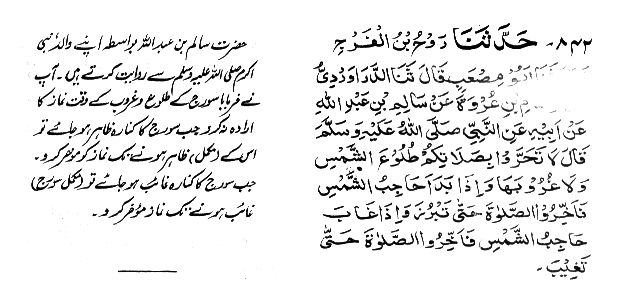 ۸۴۲- حَدَّثَنَا رَوْحُ بْنُ الْفَرَجِ
اَبُوْ مُصْعَبٍ قَالَ ثَنَا الدَّرَاوَرْدِیُّ
بْنِ عُرْوَةَ عَنْ سَالِمِ بْنِ عَبْدِ اللهِ
عَنْ اَبِيْهِ عَنِ النَّبِيِّ صَلَّى اللهُ عَلَيْهِ وَسَلَّمَ
قَالَ لَا تَحَرَّوْا بِصَلَاتِكُمْ طُلُوْعَ الشَّمْسِ
وَلَا غُرُوْبَهَا وَاِذَا بَدَا حَاجِبُ الشَّمْسِ
فَاَخِّرُوا الصَّلٰوةَ حَتّٰى تَبْرُزَ وَاِذَا غَابَ
حَاجِبُ الشَّمْسِ فَاَخِّرُوا الصَّلٰوةَ حَتّٰى
تَغِيْبَ-
حضرت سالم بن عبداللہ بواسطہ اپنے والد نبی
اکرم صلی اللہ علیہ وسلم سے روایت کرتے ہیں۔ آپ
نے فرمایا سورج کے طلوع و غروب کے وقت نماز کا
ارادہ نہ کرو جب سورج کا کنارہ ظاہر ہو جائے تو
اس کے (مکمل) ظاہر ہونے تک نماز کو مؤخر کرو۔
جب سورج کا کنارہ غائب ہو جائے تو (مکمل سورج)
غائب ہونے تک نماز مؤخر کرو۔